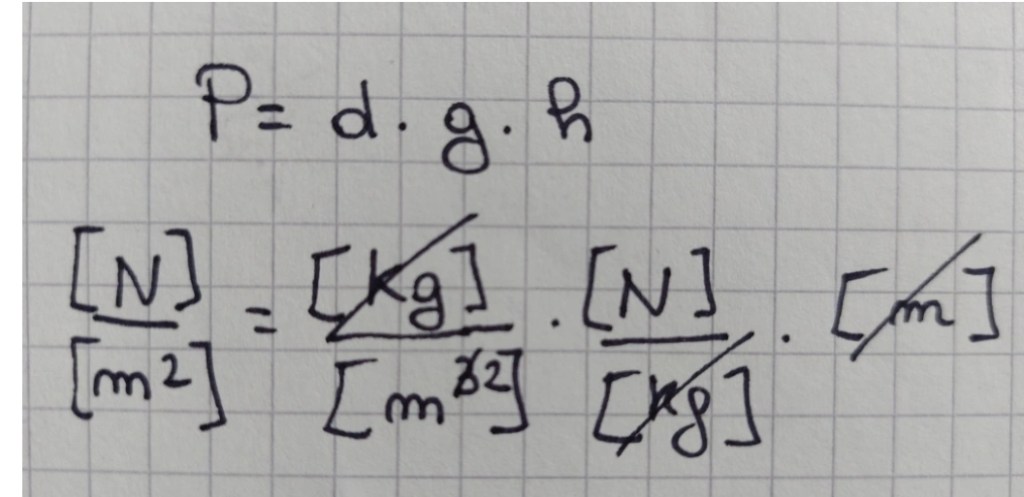 P = d . g . h
[N] / [m²] = [Kg] / [m³ ²] . [N] / [Kg] . [m]